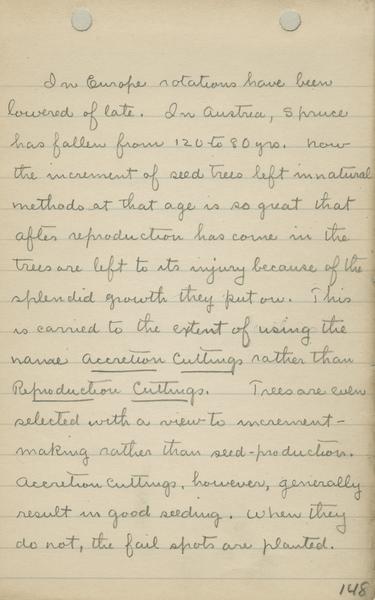 In Europe rotations have been
lowered of late. In Austria, Spruce
has fallen from 120 to 80 yrs. now
the increment of seed trees left in natural
methods at that age is so great that
after reproduction has come in the
trees are left to its injury because of the
splendid growth they put on. This
is carried to the extent of using the
name Accretion Cuttings rather than
Reproduction Cuttings. Trees are even
selected with a view to increment-
making rather than seed-production.
Accretion Cuttings, however, generally
result in good seeding. When they
do not, the fail spots are planted.
148